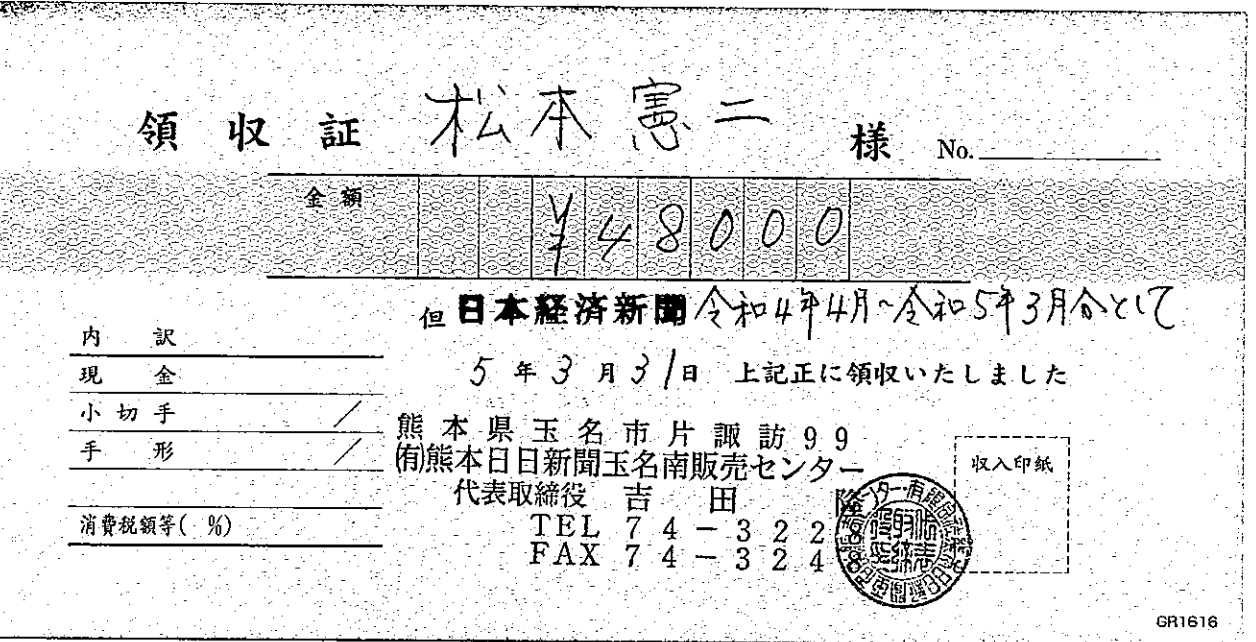 領収証 松本憲二 様 No.
金額 ¥48000
但 日本経済新聞 令和4年4月~令和5年3月分として
5年3月31日 上記正に領収いたしました
内訳
現金
小切手 /
手形 /
消費税額等( %)
熊本県玉名市片諏訪99
(有)熊本日日新聞玉名南販売センター
代表取締役 吉田 隆
TEL 74-322
FAX 74-324
収入印紙
GR1616